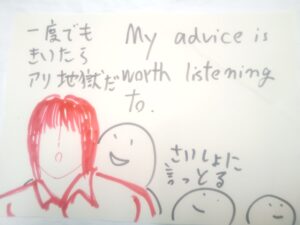 一度でも
きいたら
アリ地獄だ
My advice is
worth listening
to.
さいしょに
言っとる